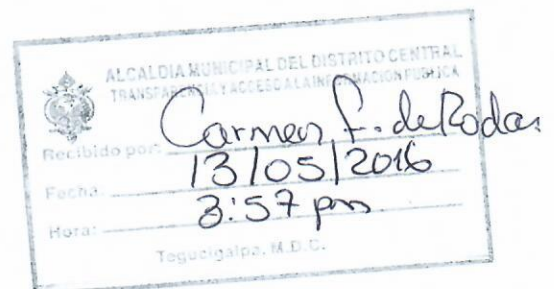 ALCALDIA MUNICIPAL DEL DISTRITO CENTRAL
TRANSPARENCIA Y ACCESO A LA INFORMACION PUBLICA
Recibido por: Carmen F. de Rodas
Fecha: 13/05/2016
Hora: 3:57 pm
Tegucigalpa, M.D.C.